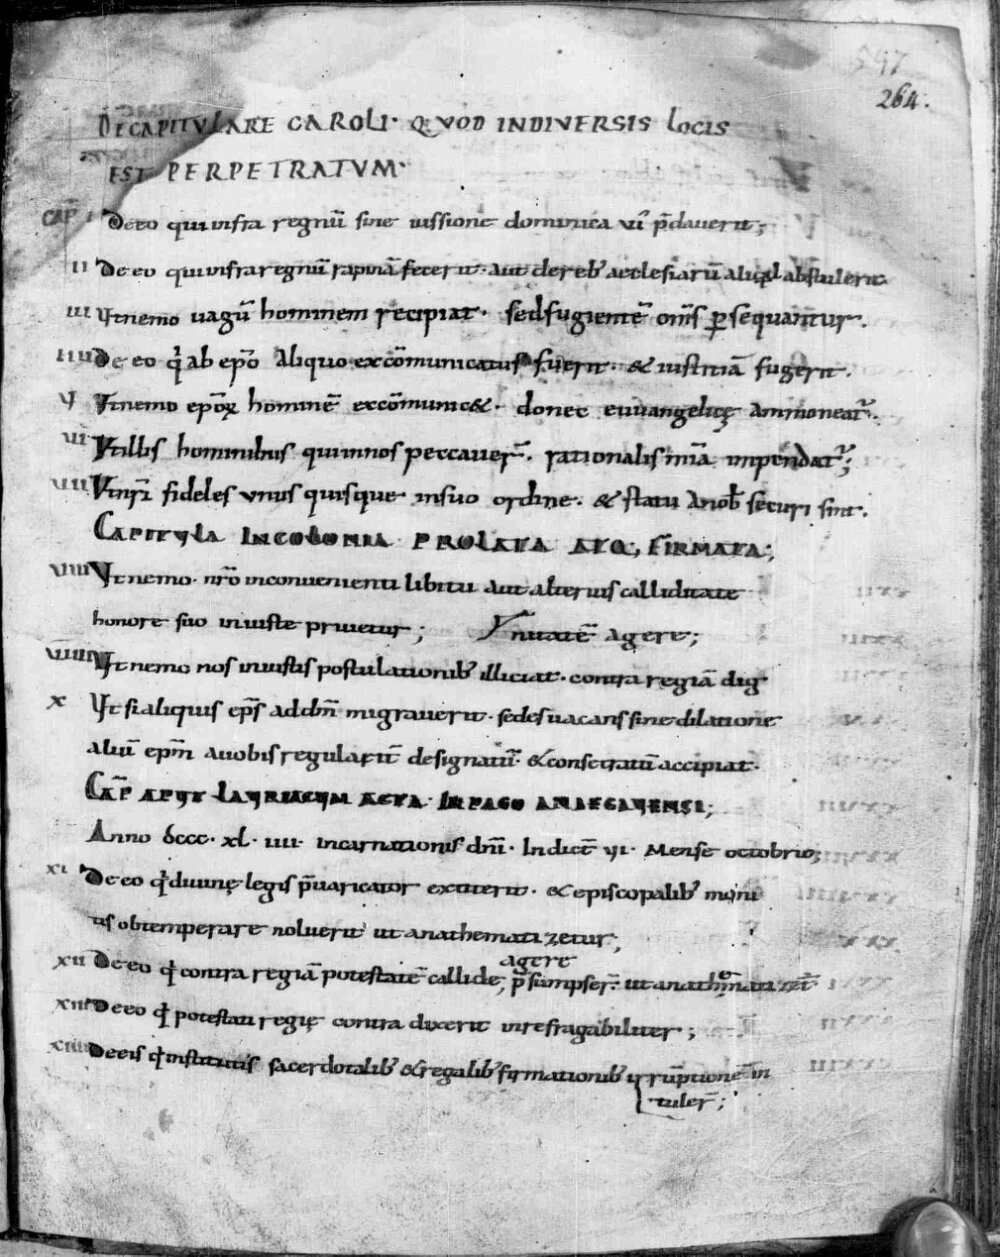 547
264.
DE CAPITULARE CAROLI · QVOD IN DIVERSIS LOCIS
EST PERPETRATVM ·
CAP̅ I De eo qui infra regnu̅ sine iussione dominica ui̅ p̅dauerit;
II De eo qui infra regnu̅ rapina̅ fecerit · aut de reb; aeclesiaru̅ aliqd abstulerit
III Vt nemo uagu̅ hominem recipiat · sed fugiente̅ om̅s ꝑsequant̅ur.
IIII De eo q̅ ab ep̅o aliquo exco̅municatus fuerit · & iustitia̅ fugerit.
V Vt nemo ep̅oꝝ homine̅ exco̅munic& · donec euuangelicę ammoneat̅.
VI Vt illis hominibus qui in nos peccauer̅ · rationalis mi̅a impendat̅;
VII Vt nr̅i fideles vnus quisque in suo ordine · & statu a nob̅ securi sint.
CAPITVLA IN COLONIA PROLATA ATQ; FIRMATA;
VIII Vt nemo · nr̅o inconuenienti libitu aut alterius calliditate
honore suo iniuste priuetur;
VIIII Vt nemo nos iniustis postulationib; illiciat · contra regia̅ dig
Ynitate̅ agere;
X Vt si aliquis ep̅s ad dn̅m migrauerit · sedes uacans sine dilatione
aliu̅ ep̅m a uobis regularit̅ designatu̅ · & consecratu̅ accipiat ·
CAP̅ APVT LAVRIACVM ACTA IN PAGO ANDEGAVENSI;
Anno dccc · xl · iiii · incarnationis dn̅i · Indict̅ vi · Mense octobrio;
XI De eo q̅ diuinę legis p̅uaricator extiterit · & episcopalib; moni
tis obtemperare noluerit ut anathematizetur;
XII De eo q̅ contra regia̅ potestate̅ callide agere p̅sumpser̅ ut anathematizet̅
XIII De eo q̅ potestati regię contra dixerit inrefragabiliter;
XIIII De eis q̅ institutis sacerdotalib; & regalib; firmationib; irruptione̅ in
tuler̅;